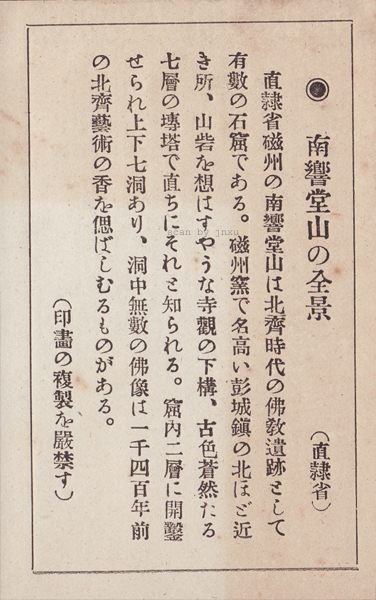 ◉ 南響堂山の全景
（直隷省）
直隷省磁州の南響堂山は北齊時代の佛教遺跡として
有數の石窟である。磁州窯で名高い彭城鎭の北ほど近
き所、山砦を想はすやうな寺觀の下構、古色蒼然たる
七層の塼塔で直ちにそれと知られる。窟内二層に開鑿
せられ上下七洞あり、洞中無數の佛像は一千四百年前
の北齊藝術の香を偲ばしむるものがある。
（印畫の複製を嚴禁す）
scan by jnxu